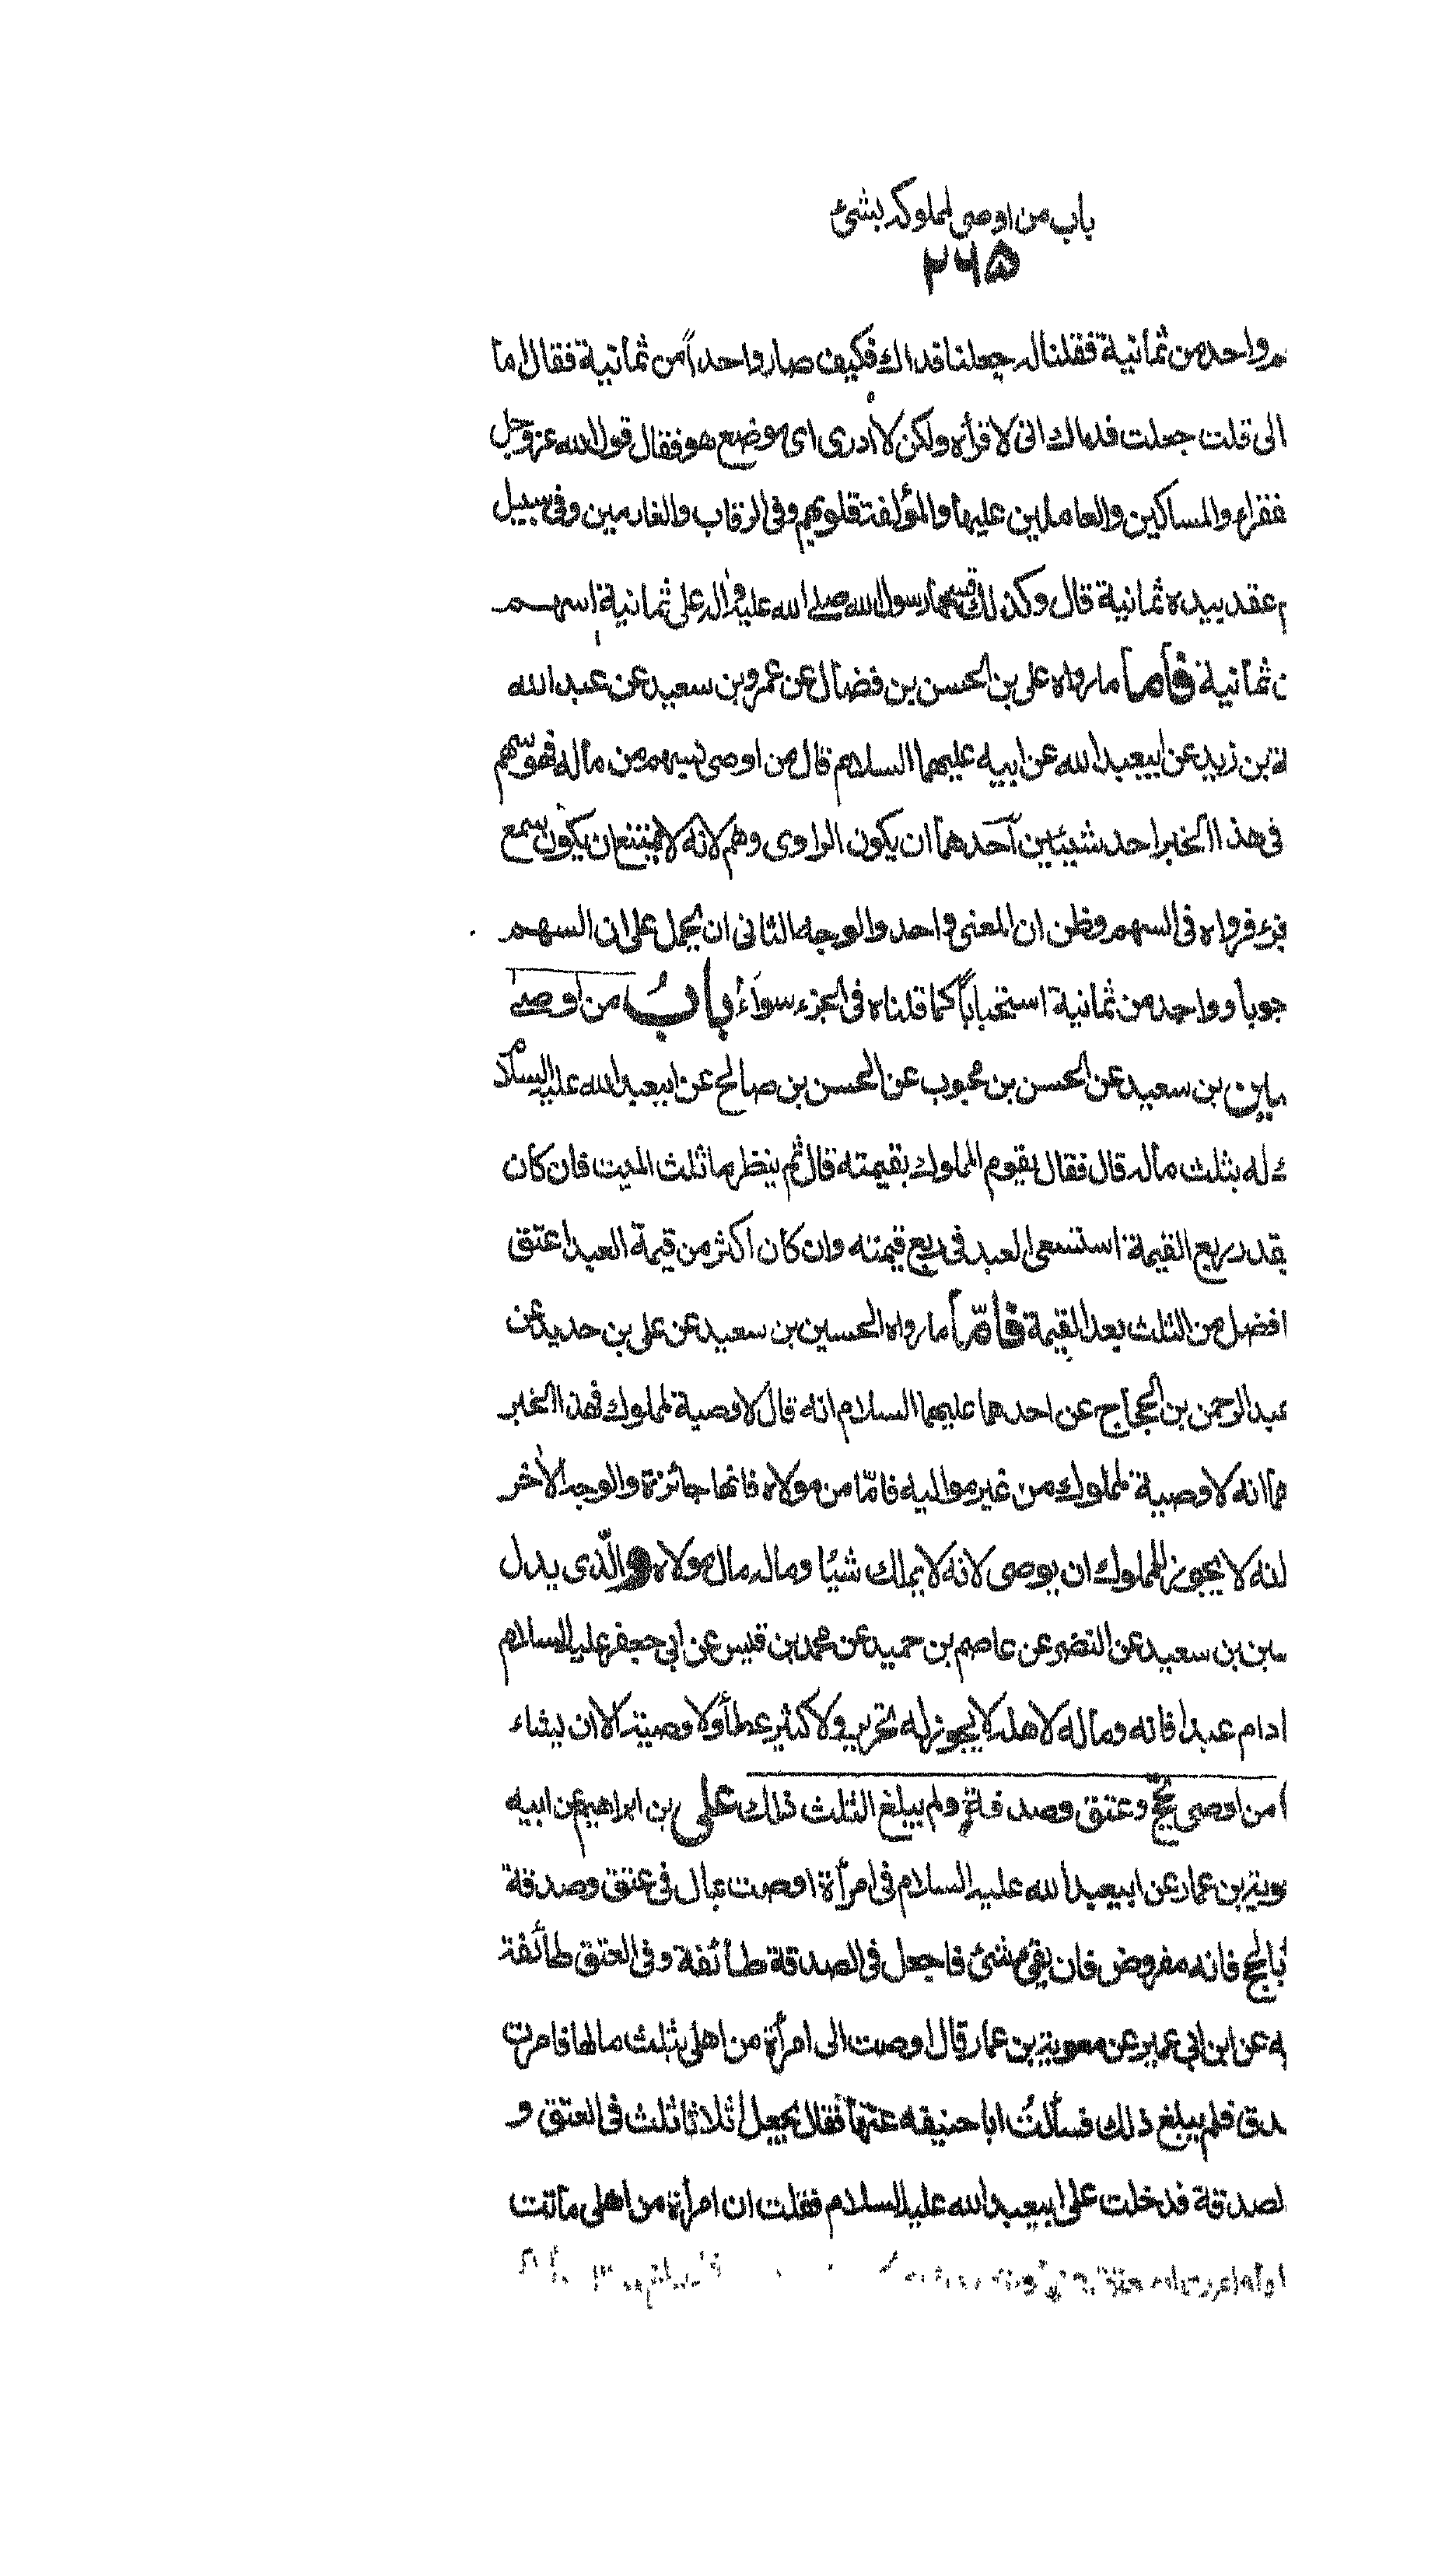 باب من اوصى لمملوكه بشئ
٢٦٥
واحد من ثمانية فقلنا له جعلنا فداك فكيف صار واحداً من ثمانية فقال اما
الى قلت جعلت فداك انى لاقرأه ولكن لا أدرى اى موضع هو فقال قول الله عز وجل
فقراء والمساكين والعاملين عليها والمؤلفة قلوبهم وفى الرقاب والغارمين وفى سبيل
عقد بيده ثمانية قال وكذلك قسمها رسول الله صلى الله عليه واله على ثمانية اسهم
ن ثمانية فأما ما رواه على بن الحسن بن فضال عن عمرو بن سعيد عن عبد الله
بن زيد عن ابيعبد الله عن ابيه عليهما السلام قال من اوصى بسهم من ماله فهو سهم
فى هذا الخبر احد شيئين احدهما ان يكون الراوى وهم لانه لا يمتنع ان يكون سمع
فرواه فى السهم وظن ان المعنى واحد والوجه الثانى ان يحمل على ان السهم
جوبا وواحد من ثمانية استحباباً كما قلناه فى الجزء سواء باب من اوصى
بن سعيد عن الحسن بن محبوب عن الحسن بن صالح عن ابيعبد الله عليه السلام
له بثلث ماله قال فقال يقوم المملوك بقيمته قال ثم ينظر ما ثلث الميت فان كان
بقدر ربع القيمة استسعى العبد فى ربع قيمته وان كان اكثر من قيمة العبد اعتق
افضل من الثلث بعد القيمة فأمّا ما رواه الحسين بن سعيد عن على بن حديد عن
عبد الرحمن بن الحجاج عن احدهما عليهما السلام انه قال لا وصية لمملوك فهذا الخبر
انه لا وصية لمملوك من غير مواليه فامّا من مولاه فانها جائزة والوجه الأخر
انه لا يجوز للمملوك ان يوصى لانه لا يملك شيئا وماله مال مولاه والّذى يدل
بن سعيد عن النضر عن عاصم بن حميد عن محمد بن قيس عن ابى جعفر عليه السلام
ادام عبدا فانه وماله لاهله لا يجوز له تحرير ولا كثير عطأ ولا وصية الا ان يشاء
من اوصى بحج وعتق وصدقة ولم يبلغ الثلث ذلك على بن ابراهيم عن ابيه
وية بن عمار عن ابيعبد الله عليه السلام فى امرأة اوصت بمال فى عتق وصدقة
بالحج فانه مفروض فان بقى شئ فاجعل فى الصدقة طائفة وفى العتق طائفة
عن ابن ابى عمير عن معوية بن عمار قال اوصت الى امرأة من اهلى بثلث مالها فامرت
دق فلم يبلغ ذلك فسألت ابا حنيفه عنها فقال يجعل اثلاثا ثلث فى العتق و
لصدقة فدخلت على ابيعبد الله عليه السلام فقلت ان امرأة من اهلى ماتت